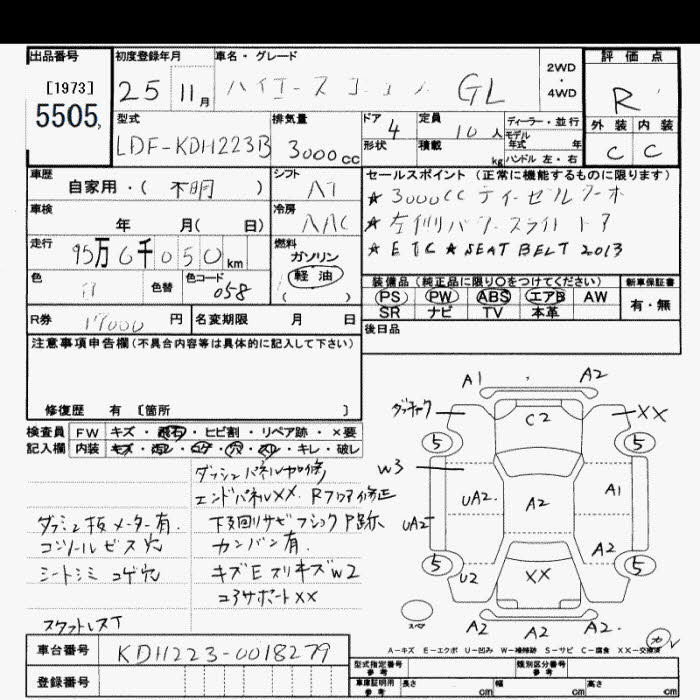 出品番号
[1973]
5505,
初度登録年月
25 11月
車名・グレード
ハイエースコミューター GL
2WD
・
4WD
評価点
R
外装 内装
C C
型式
LDF-KDH223B
排気量
3000cc
ドア 4
形状
定員 10人
積載 kg
ディーラー・並行
モデル年式 年
ハンドル 左・右
車歴
自家用・( 不明 )
シフト
AT
車検
年 月( 日)
冷房
AAC
走行
95万6千050km
燃料
ガソリン
軽油
( )
色
白
色替
色コード
058
セールスポイント (正常に機能するものに限ります)
★3000cc ディーゼルターボ
★左側パワースライドドア
★ETC ★SEAT BELT 2013
装備品 (純正品に限り○をつけてください)
PS PW ABS エアB AW
SR ナビ TV 本革
新車保証書
有・無
R券 円
名変期限 月 日
後日品
注意事項申告欄(不具合内容等は具体的に記入して下さい)
修復歴 有 [箇所 ]
検査員
記入欄
FW キズ・飛石・ヒビ割・リペア跡・×要
内装 キズ・汚レ・コゲ・穴・スレ・キレ・破レ
ダッシュパネル加修
エンドパネルXX. Rフロア修正
ダッシュ板メーター有. 下廻りサビ フジックP跡
コンソールビス穴 カンバン有.
シートシミ コゲ穴 キズEスリキズW2
コアサポートXX
A1 A2
XX
C2
5 5
W3
UA2. A2 A1
UA2
A2
5 5
U2 XX
スペア
A2 A2 A2
A-キズ E-エクボ U-凹み W-補修跡 S-サビ C-腐食 XX-交換済
車台番号
KDH223-0018279
登録番号
型式指定番号
参考
類別区分番号
参考
車庫証明用
参考
長さ cm
幅 cm
高さ cm